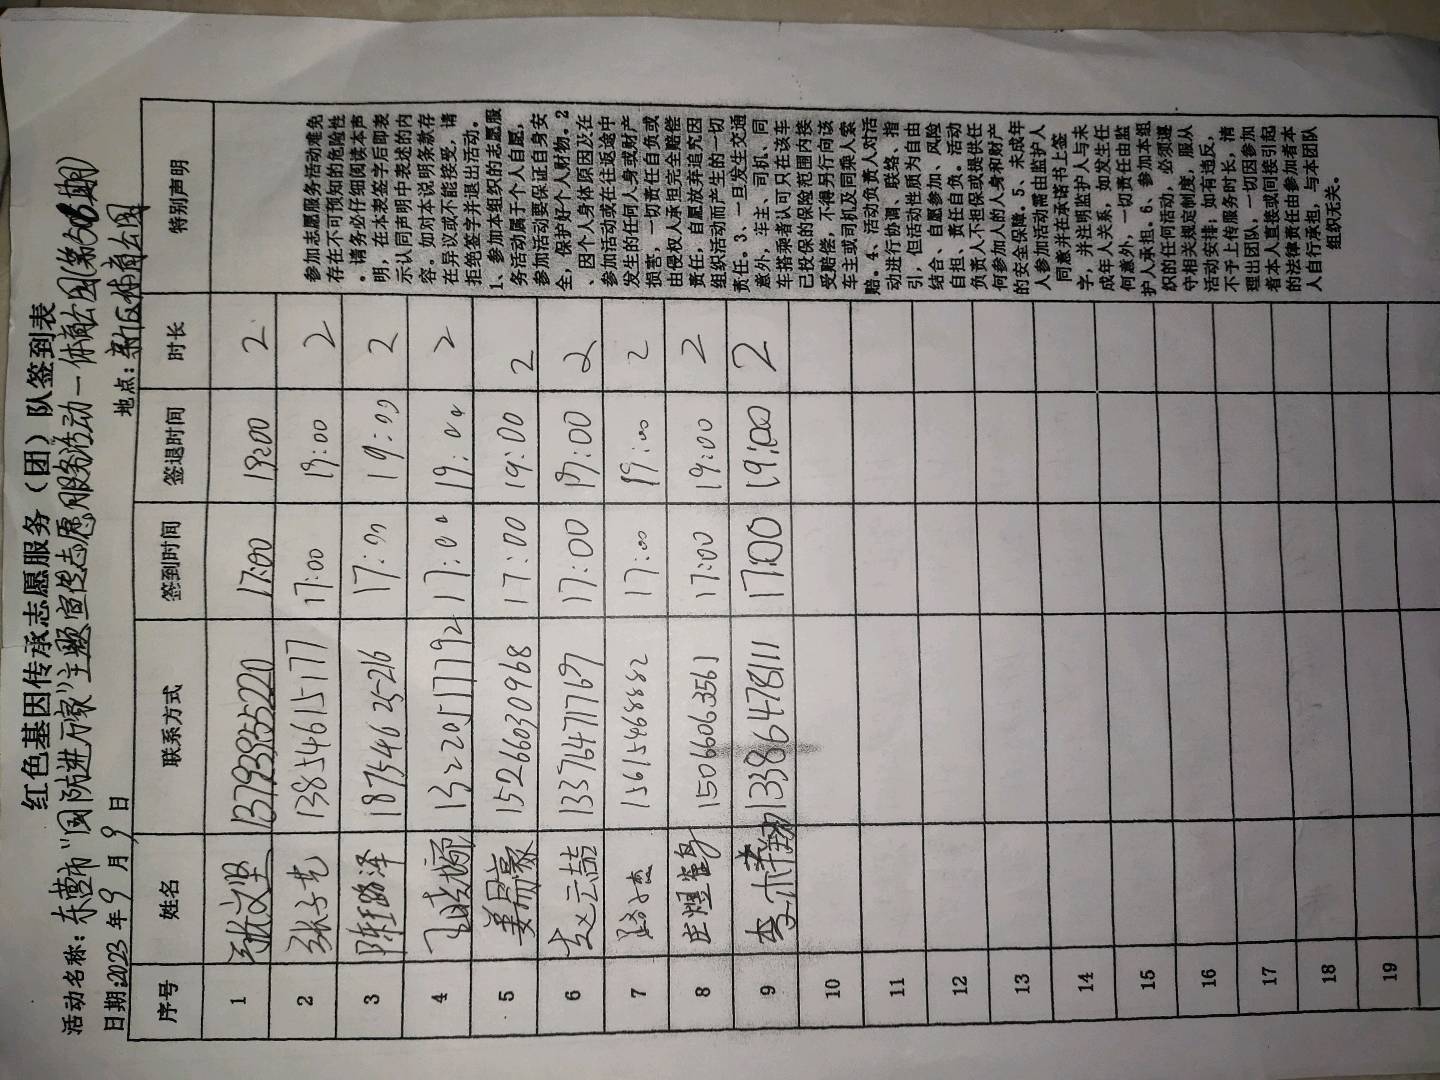 红色基因传承志愿服务（团）队签到表
活动名称：东营市"国防进万家"主题宣传志愿服务活动一体育公园(第68期)
日期:2023 年 9 月 9 日 地点：东区体育公园
序号 姓名 联系方式 签到时间 签退时间 时长 特别声明
1 张文坚 13793855220 17:00 19:00 2
2 张子艺 13854615177 17:00 19:00 2
3 陈路泽 17:00 19:00 2
4 13220517792 17:00 19:00 2
5 姜翯豪 15266030968 17:00 19:00 2
6 赵云喆 13376471769 17:00 19:00 2
7 路子贵 15615468882 17:00 19:00 2
8 庄煜 15066063561 17:00 19:00 2
9 李沛翔 13386478111 17:00 19:00 2
10
11
12
13
14
15
16
17
18
19
参加志愿服务活动难免
存在不可预知的危险性
。请务必仔细阅读本声
明，在本表签字后即表
示认同声明中表述的内
容。如对本说明条款存
在异议或不能接受，请
拒绝签字并退出活动。
1、参加本组织的志愿服
务活动属于个人自愿，
参加活动要保证自身安
全，保护好个人财物。2
、因个人身体原因及在
参加活动或在往返途中
发生的任何人身或财产
损害，一切责任自负或
由侵权人承担完全赔偿
责任，自愿放弃追究因
组织活动而产生的一切
责任。3、一旦发生交通
意外，车主、司机、同
车搭乘者认可只在该车
已投保的保险范围内接
受赔偿，不得另行向该
车主或司机及同乘人索
赔。4、活动负责人对活
动进行协调、联络、指
引，但活动性质为自由
结合、自愿参加、风险
自担、责任自负。活动
负责人不担保或提供任
何参加人的人身和财产
的安全保障。5、未成年
人参加活动需由监护人
同意并在承诺书上签
字，并注明监护人与未
成年人关系，如发生任
何意外，一切责任由监
护人承担。6、参加本组
织的任何活动，必须遵
守相关规定制度，服从
活动安排；如有违反，
不予上传服务时长，清
理出团队，一切因参加
者本人直接或间接引起
的法律责任由参加者本
人自行承担，与本团队
组织无关。